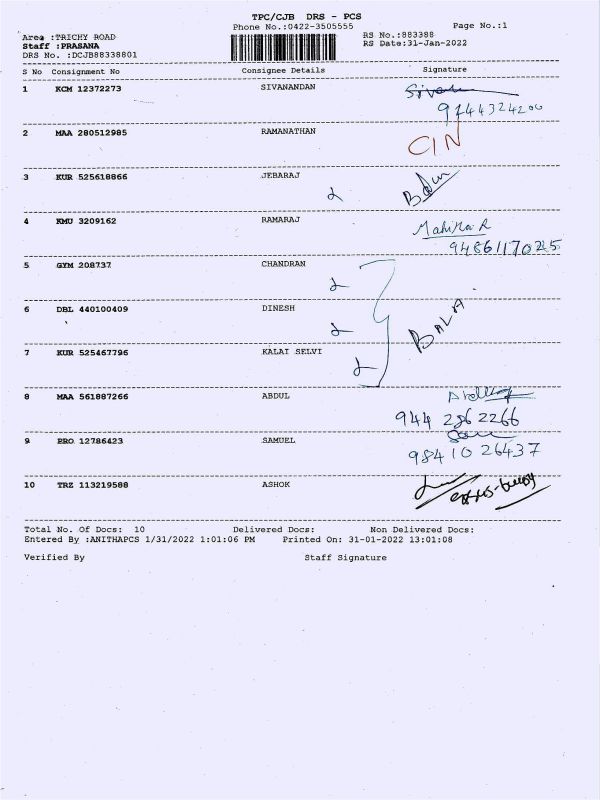 TPC/CJB DRS - PCS
Phone No.:0422-3505555 Page No.:1
Area :TRICHY ROAD RS No.:883388
Staff :PRASANA RS Date:31-Jan-2022
DRS No. :DCJB88338801
S No Consignment No Consignee Details Signature
1 KCM 12372273 SIVANANDAN
2 MAA 280512985 RAMANATHAN CIN
3 KUR 525618866 JEBARAJ
4 KMU 3209162 RAMARAJ
5 GYM 208737 CHANDRAN
6 DBL 440100409 DINESH BALA
7 KUR 525467796 KALAI SELVI
8 MAA 561887266 ABDUL
944 2862266
9 PRO 12786423 SAMUEL
98410 26437
10 TRZ 113219588 ASHOK
Total No. Of Docs: 10 Delivered Docs: Non Delivered Docs:
Entered By :ANITHAPCS 1/31/2022 1:01:06 PM Printed On: 31-01-2022 13:01:08
Verified By Staff Signature